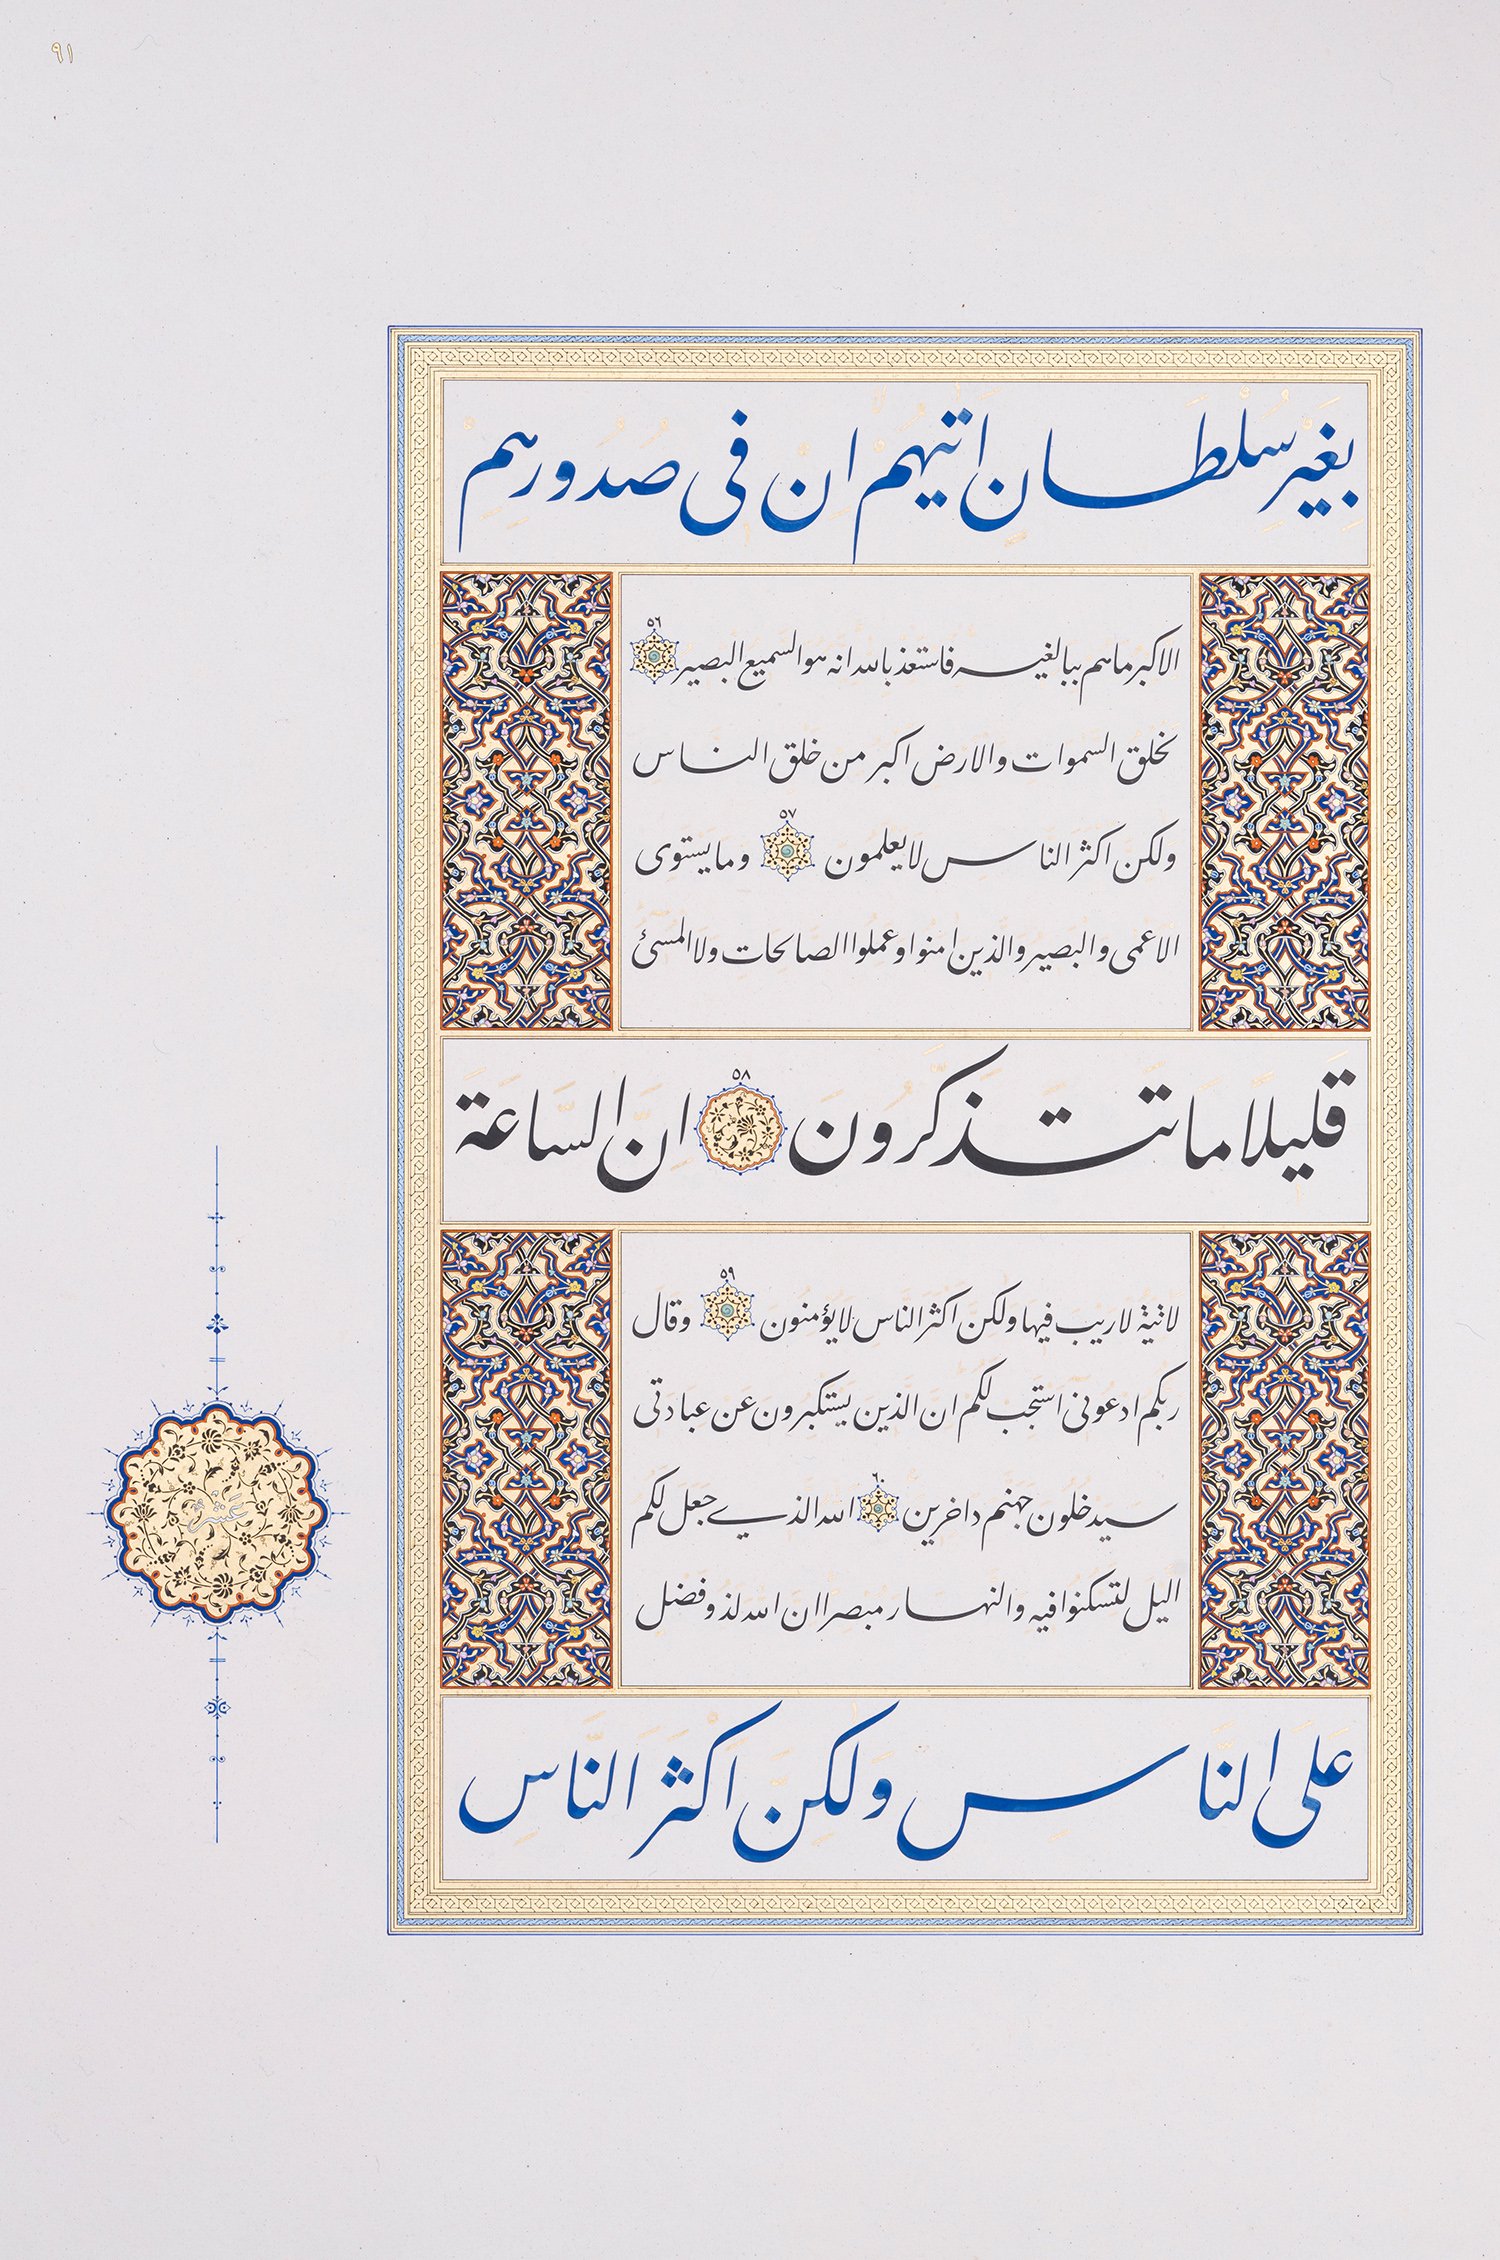 ٩١
بِغَيْرِ سُلْطَانٍ اَتٰيهُمْ اِنْ فى صُدُورِهِمْ
الا كبر ما هم ببالغيه فاستعذ بالله انه هو السميع البصير ٥٦
لخلق السموات والارض اكبر من خلق الناس
ولكن اكثر الناس لا يعلمون ٥٧ وما يستوى
الاعمى والبصير والذين امنوا وعملوا الصالحات ولا المسئ
قَليلًا مَا تَتَذَكَّرُونَ ٥٨ اِنَّ السَّاعَةَ
لاتية لا ريب فيها ولكن اكثر الناس لا يؤمنون ٥٩ وقال
ربكم ادعونى استجب لكم ان الذين يستكبرون عن عبادتى
سيدخلون جهنم داخرين ٦٠ الله الذي جعل لكم
اليل لتسكنوا فيه والنهار مبصرا ان الله لذو فضل
عَلَى النَّاسِ وَلٰكِنَّ اَكْثَرَ النَّاسِ
عشر